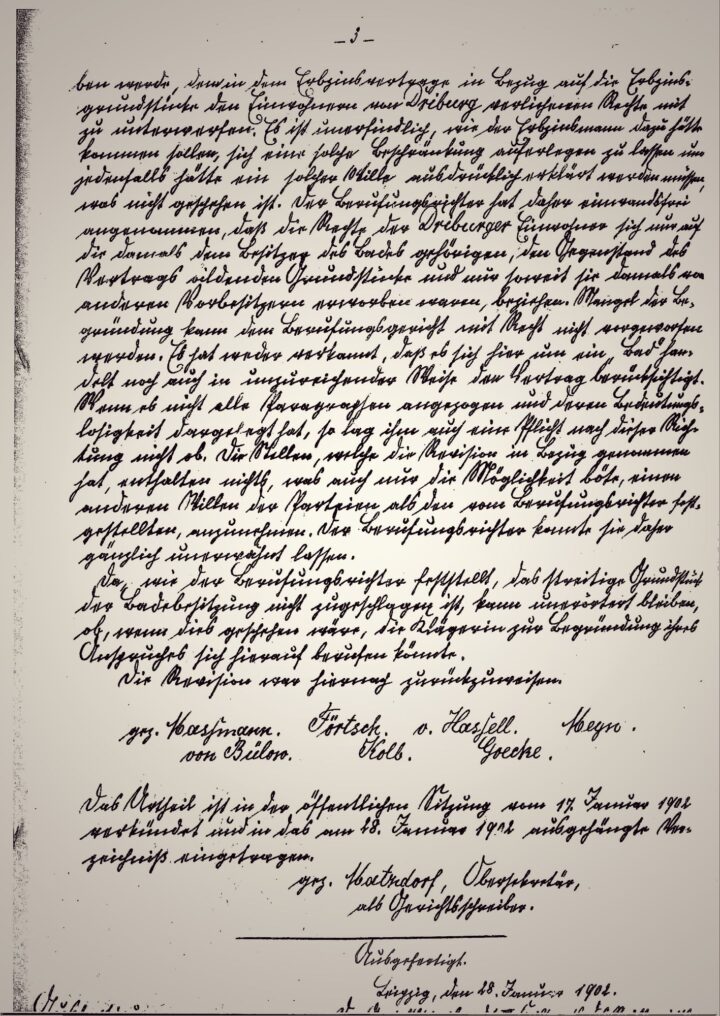 - 3 -
ben werde, dem in dem Erbzinsvertrage in Bezug auf die Erbzins-
grundstücke den Einwohnern von Driburg verliehenen Rechte mit
zu unterwerfen. Es ist unerfindlich, wie der Erbzinsmann dazu hätte
kommen sollen, sich eine solche Beschränkung auferlegen zu lassen und
jedenfalls hätte ein solcher Wille ausdrücklich erklärt werden müssen,
was nicht geschehen ist. Der Berufungsrichter hat daher einwandsfrei
angenommen, daß die Rechte der Driburger Einwohner sich nur auf
die damals dem Besitzer des Bades gehörigen, den Gegenstand des
Vertrags bildenden Grundstücke und nur soweit sie damals von
anderen Vorbesitzern erworben waren, beziehen. Mangel der Be-
gründung kann dem Berufungsgericht mit Recht nicht vorgeworfen
werden. Es hat weder verkannt, daß es sich hier um ein „Bad" han-
delt noch auch in unzureichender Weise den Vertrag berücksichtigt.
Wenn es nicht alle Paragraphen angezogen und deren Bedeutungs-
losigkeit dargelegt hat, so lag ihm auch eine Pflicht nach dieser Rich-
tung nicht ob. Die Stellen, welche die Revision in Bezug genommen
hat, enthalten nichts, was auch nur die Möglichkeit böte, einen
anderen Willen der Parteien als den vom Berufungsrichter fest-
gestellten, anzunehmen. Der Berufungsrichter konnte sie daher
gänzlich unerwähnt lassen.
Da, wie der Berufungsrichter feststellt, das streitige Grundstück
der Badebesitzung nicht zugeschlagen ist, kann unerörtert bleiben,
ob, wenn dies geschehen wäre, die Klägerin zur Begründung ihres
Anspruches sich hierauf berufen könnte.
Die Revision war hiernach zurückzuweisen.
gez. Massmann. Förtsch. v. Hassell. Meyn.
von Bülow. Kolb. Goecke.
Das Urtheil ist in der öffentlichen Sitzung vom 17. Januar 1902
verkündet und in das am 28. Januar 1902 ausgehängte Ver-
zeichniß eingetragen.
gez. Matzdorf, Obersekretär,
als Gerichtsschreiber.
Ausgefertigt.
Leipzig, den 28. Januar 1902.